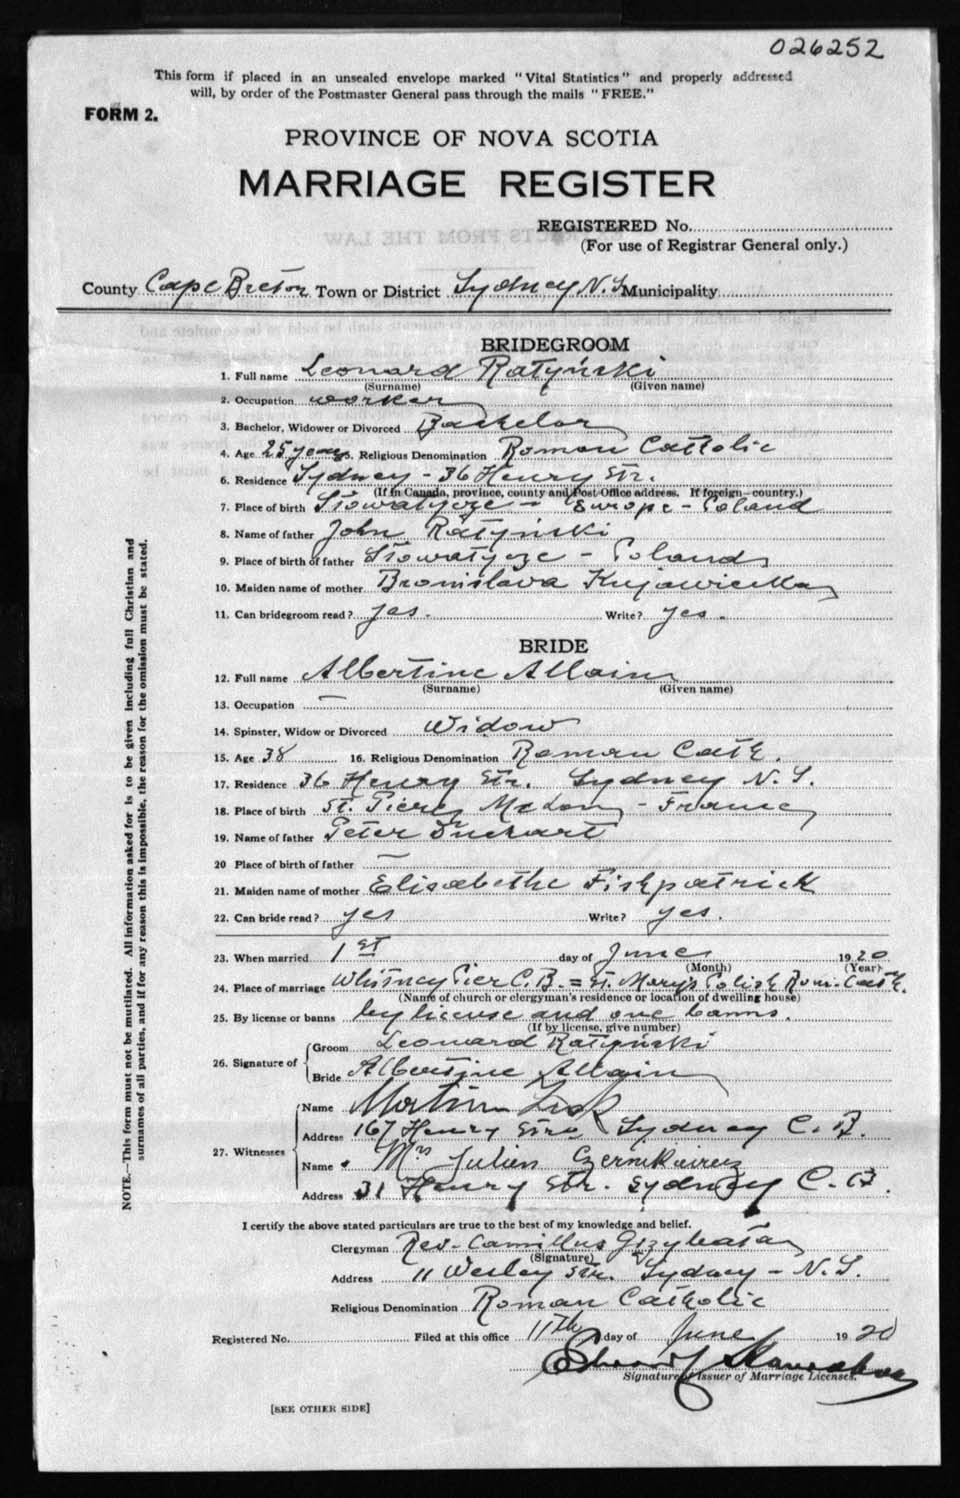 026252
This form if placed in an unsealed envelope marked "Vital Statistics" and properly addressed
will, by order of the Postmaster General pass through the mails "FREE."
FORM 2.
PROVINCE OF NOVA SCOTIA
MARRIAGE REGISTER
REGISTERED No.
(For use of Registrar General only.)
County Cape Breton Town or District Sydney N.S. Municipality
BRIDEGROOM
1. Full name Leonard Ratyński
(Surname) (Given name)
2. Occupation worker
3. Bachelor, Widower or Divorced Bachelor
4. Age 25 years 5. Religious Denomination Roman Catholic
6. Residence Sydney - 36 Henry Str.
(If in Canada, province, county and Post Office address. If foreign—country.)
7. Place of birth Słowatycze - Europe - Poland
8. Name of father John Ratyński
9. Place of birth of father Słowatycze - Poland
10. Maiden name of mother Bronislava Kujawicka
11. Can bridegroom read? yes. Write? yes.
BRIDE
12. Full name Albertine Allain
(Surname) (Given name)
13. Occupation —
14. Spinster, Widow or Divorced Widow
15. Age 38 16. Religious Denomination Roman Cath.
17. Residence 36 Henry Str. Sydney N.S.
18. Place of birth St. Pierre - France
19. Name of father Peter
20 Place of birth of father —
21. Maiden name of mother Elisabethe Fishpatrick
22. Can bride read? yes Write? yes.
23. When married 1st day of June 1920
(Month) (Year)
24. Place of marriage Whitney Pier C.B. = St. Mary's Polish Rom. Cath.
(Name of church or clergyman's residence or location of dwelling house)
25. By license or banns by license and one banns.
(If by license, give number)
26. Signature of Groom Leonard Ratyński
Bride Albertine Allain
27. Witnesses
Name Martin
Address 167 Henry Sydney C.B.
Name Mrs Julien
Address 31 Henry Str. Sydney C.B.
I certify the above stated particulars are true to the best of my knowledge and belief.
Clergyman Rev. Camillus
(Signature)
Address 11 Wesley Str. Sydney - N.S.
Religious Denomination Roman Catholic
Registered No. Filed at this office 11th day of June 1920
Signature of Issuer of Marriage Licenses.
[SEE OTHER SIDE]
NOTE.—This form must not be mutilated. All information asked for is to be given including full Christian and
surnames of all parties, and if for any reason this is impossible, the reason for the omission must be stated.